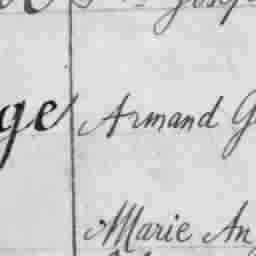 Joseph
ge Armand G
Marie An